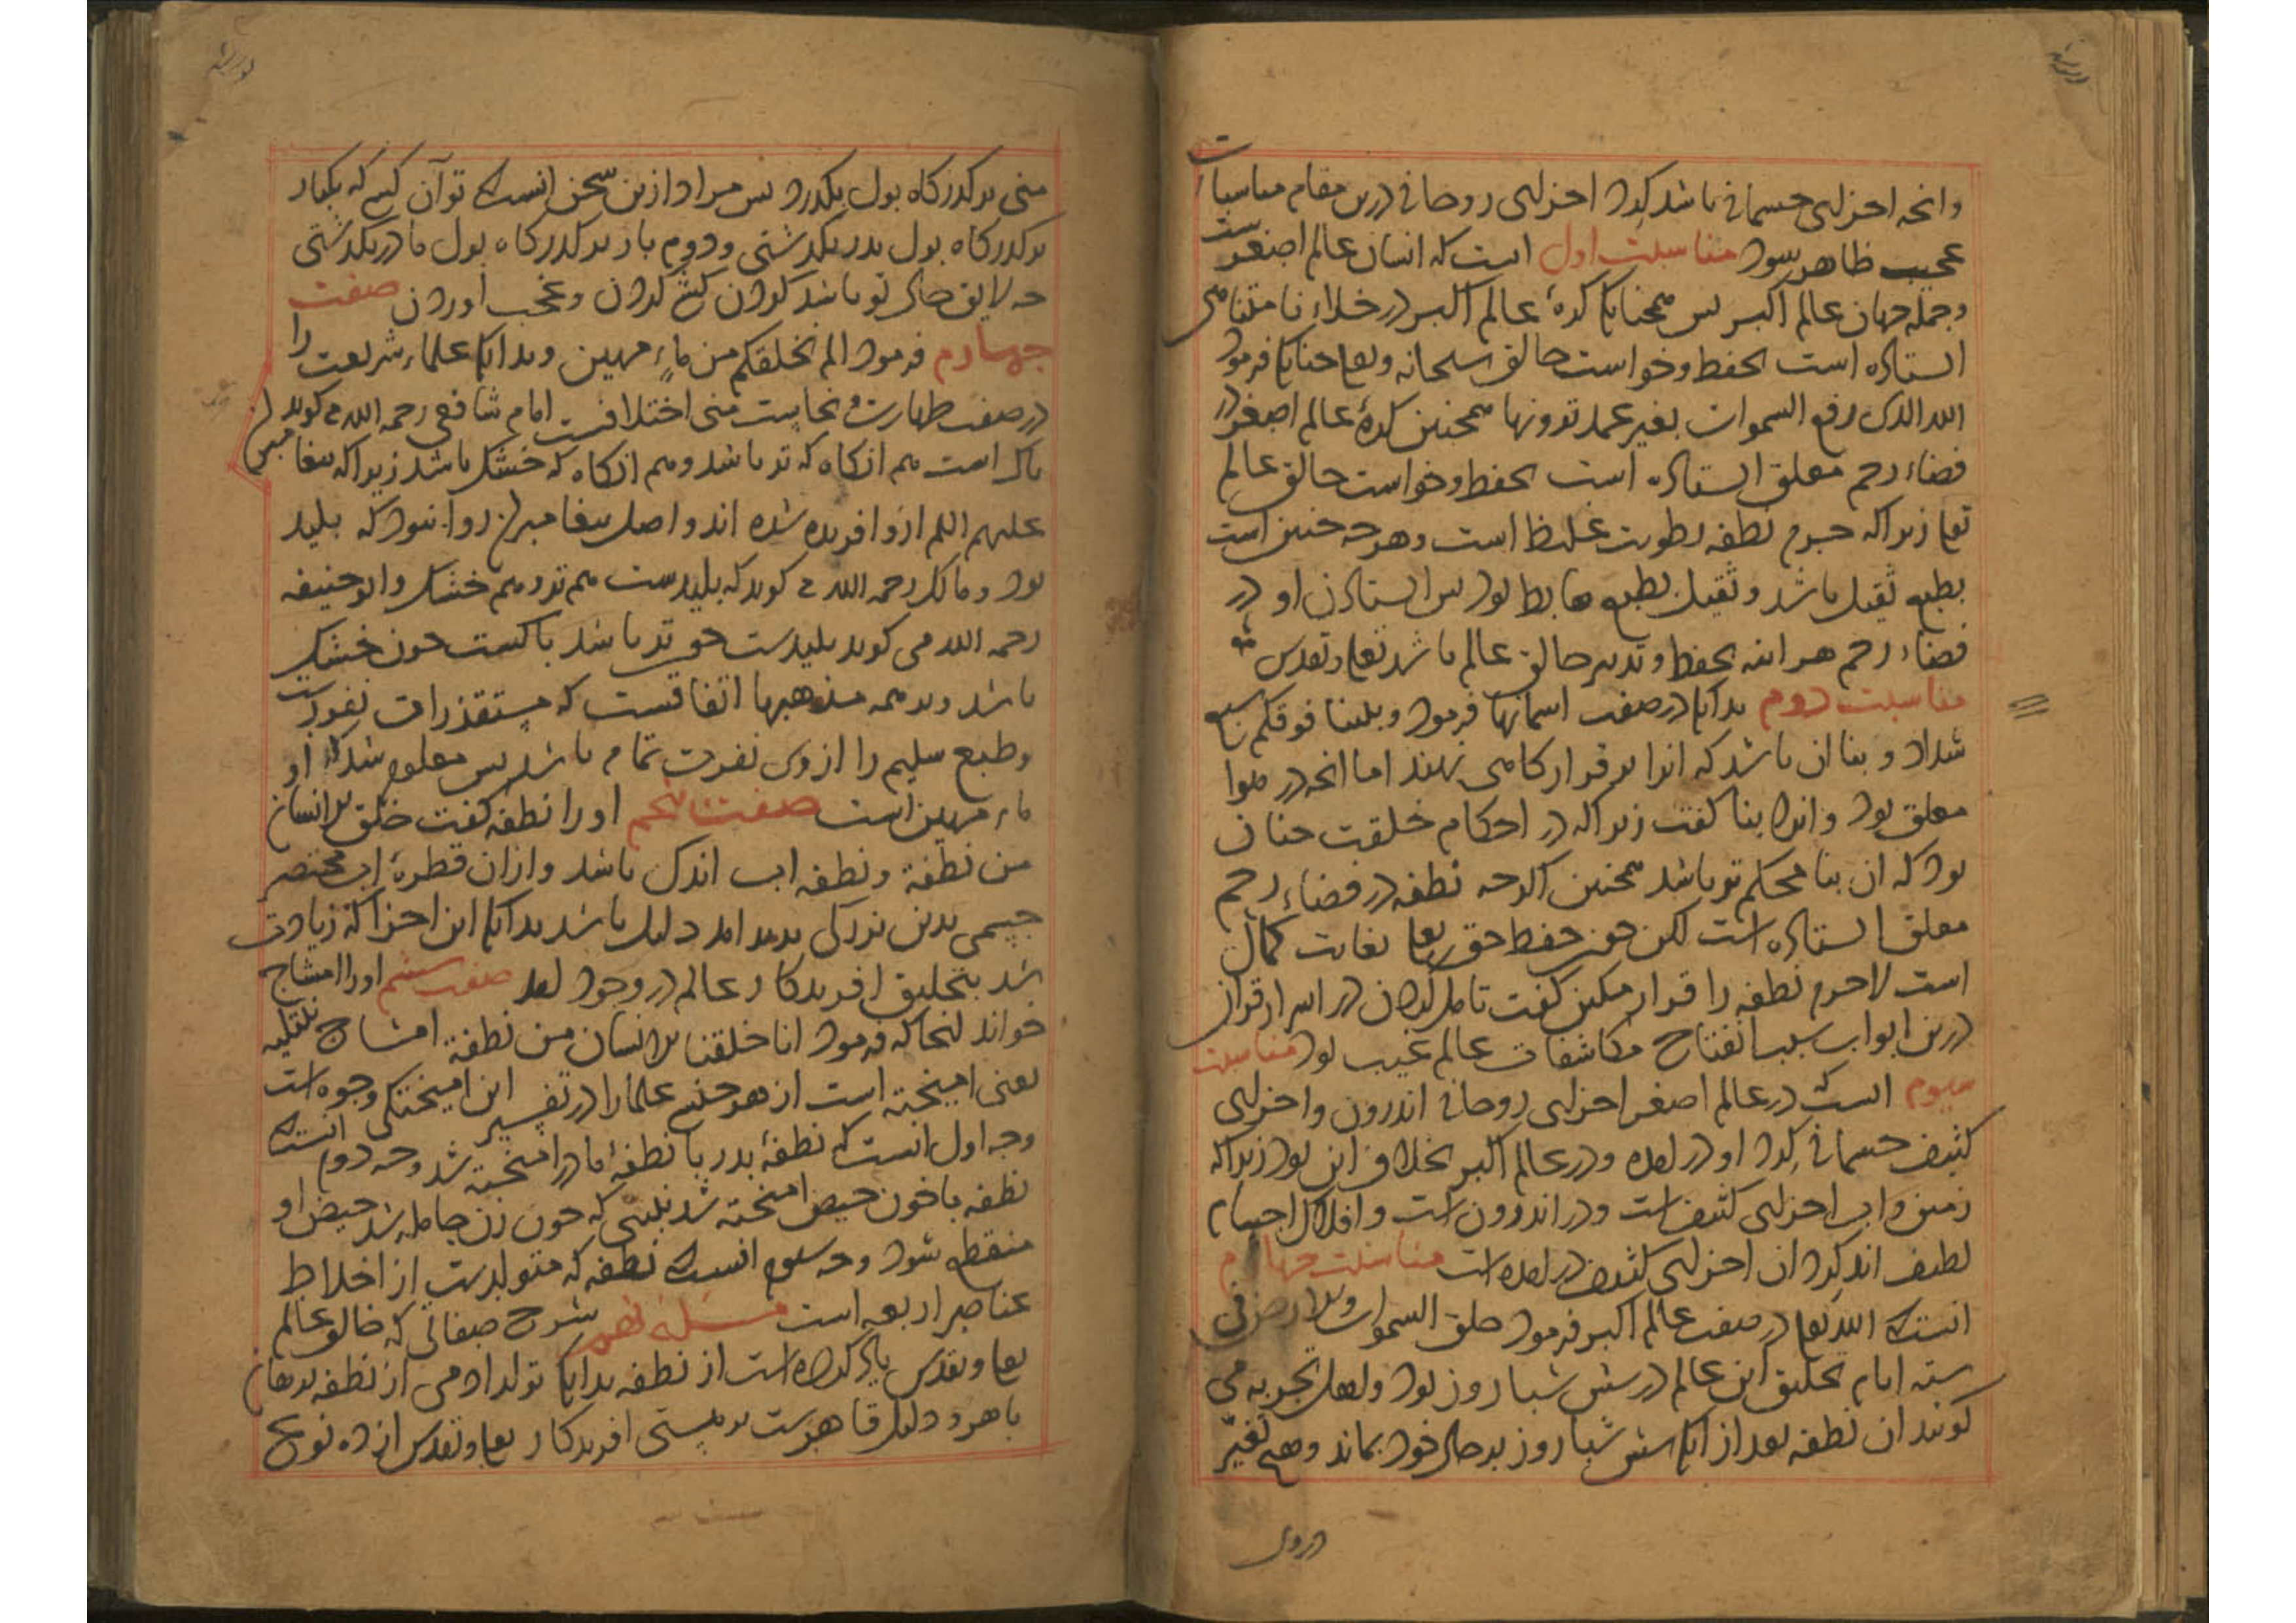 وانچه اجزای جسمانی باشد گرد اجزای روحانی درین مقام مناسبات
عجیب ظاهر شود مناسبت اول است که انسان عالم اصغرست
وجمله جهان عالم اکبر پس همچنانک کرهٔ عالم اکبر در خلاء نامتناهی
ایستاده است بحفظ وخواست خالق سبحانه وتعا چنانک فرمود
الله الذی رفع السموات بغیر عمد ترونها همچنین کرهٔ عالم اصغر در
فضاء رحم معلق ایستاده است بحفظ وخواست خالق عالم
تعا زیراکه جرم نطفه رطوبت غلیظ است وهرچه چنین است
بطبع ثقیل باشد وثقیل بطبع هابط بود پس ایستادن او در
فضاء رحم هراینه بحفظ وتدبیر خالق عالم باشد تعا وتقدس
مناسبت دوم بدانک در صفت اسمانها فرمود وبنینا فوقکم سبع
شداد وبنا ان باشد که انرا بر قرارگاهی نهند اما انچه در هوا
معلق بود وانرا بنا گفت زیراکه در احکام خلقت چنان
بود که ان بنا محکم تر باشد همچنین اگرچه نطفه در فضاء رحم
معلق ایستاده است لکن چون حفظ حق تعا بغایت کمال
است لاجرم نطفه را قرار مکین گفت تامل کردن در اسرار قران
درین ابواب سبب انفتاح مکاشفات عالم غیب بود مناسبت
سیوم انست که در عالم اصغر اجزای روحانی اندرون واجزای
کثیف جسمانی گرد او در امده ودر عالم اکبر بخلاف این بود زیراکه
زمین واب اجزای کثیف است ودر اندرون است وافلاک اجسام
لطیف اند گرد ان اجزای کثیف در امده است مناسبت چهارم
انست که الله تعا در صفت عالم اکبر فرمود خلق السموات والارض فی
ستة ایام تخلیق این عالم در شش شبا روز بود واهل تجربه می
گویند ان نطفه بعد از انک شش شبا روز بر حال خود بماند وهیچ تغیر
در وی
منی بر گذرگاه بول بگذرد پس مراد ازین سخن انست که تو آن کسی که یکبار
بر گذرگاه بول پدر بگذشتی ودوم بار بر گذرگاه بول مادر بگذشتی
چه لایق حال تو باشد گردن کشی کردن وعجب اوردن صفت
چهارم فرمود الم نخلقکم من ماء مهین وبدانک علماء شریعت را
در صفت طهارت ونجاست منی اختلافست امام شافعی رحمه الله می گوید
پاک است هم انگاه که تر باشد وهم انگاه که خشک باشد زیراکه پیغامبران
علیهم السلم ازو افریده شده اند واصل پیغامبران روا نبود که پلید
بود ومالک رحمه الله می گوید که پلیدست هم تر وهم خشک وابو حنیفه
رحمه الله می گوید پلیدست چون تر باشد پاکست چون خشک
باشد وبر همه مذهبها اتفاقست که مستقذر است
وطبع سلیم را از وی نفرت تمام باشد پس معلوم شد که او
ماء مهین است صفت پنجم او را نطفه گفت خلق الانسان
من نطفة ونطفه اب اندک باشد وازان قطرهٔ اب مختصر
جسمی بدین بزرگی پدید امد دلیل باشد بدانک این اجزا که زیادت
شد بتخلیق افریدگار عالم در وجود امد صفت ششم او را امشاج
خواند انجا که فرمود انا خلقنا الانسان من نطفة امشاج نبتلیه
یعنی امیخته است از هر جنس علما را در تفسیر این امیختگی وجوه است
وجه اول انست که نطفهٔ پدر با نطفهٔ مادر امیخته شد وجه دوم انست که
نطفه با خون حیض امیخته شد نبینی که چون زن حامله شد حیض او
منقطع شود وجه سیوم انست که نطفه که متولدست از اخلاط
عناصر اربعه است مسئله نهم شرح صفاتی که خالق عالم
تعا وتقدس یاد کرده است از نطفه بدانک تولد ادمی از نطفه برهان
باهر ودلیل قاهرست بر هستی افریدگار تعا وتقدس از ده نوع